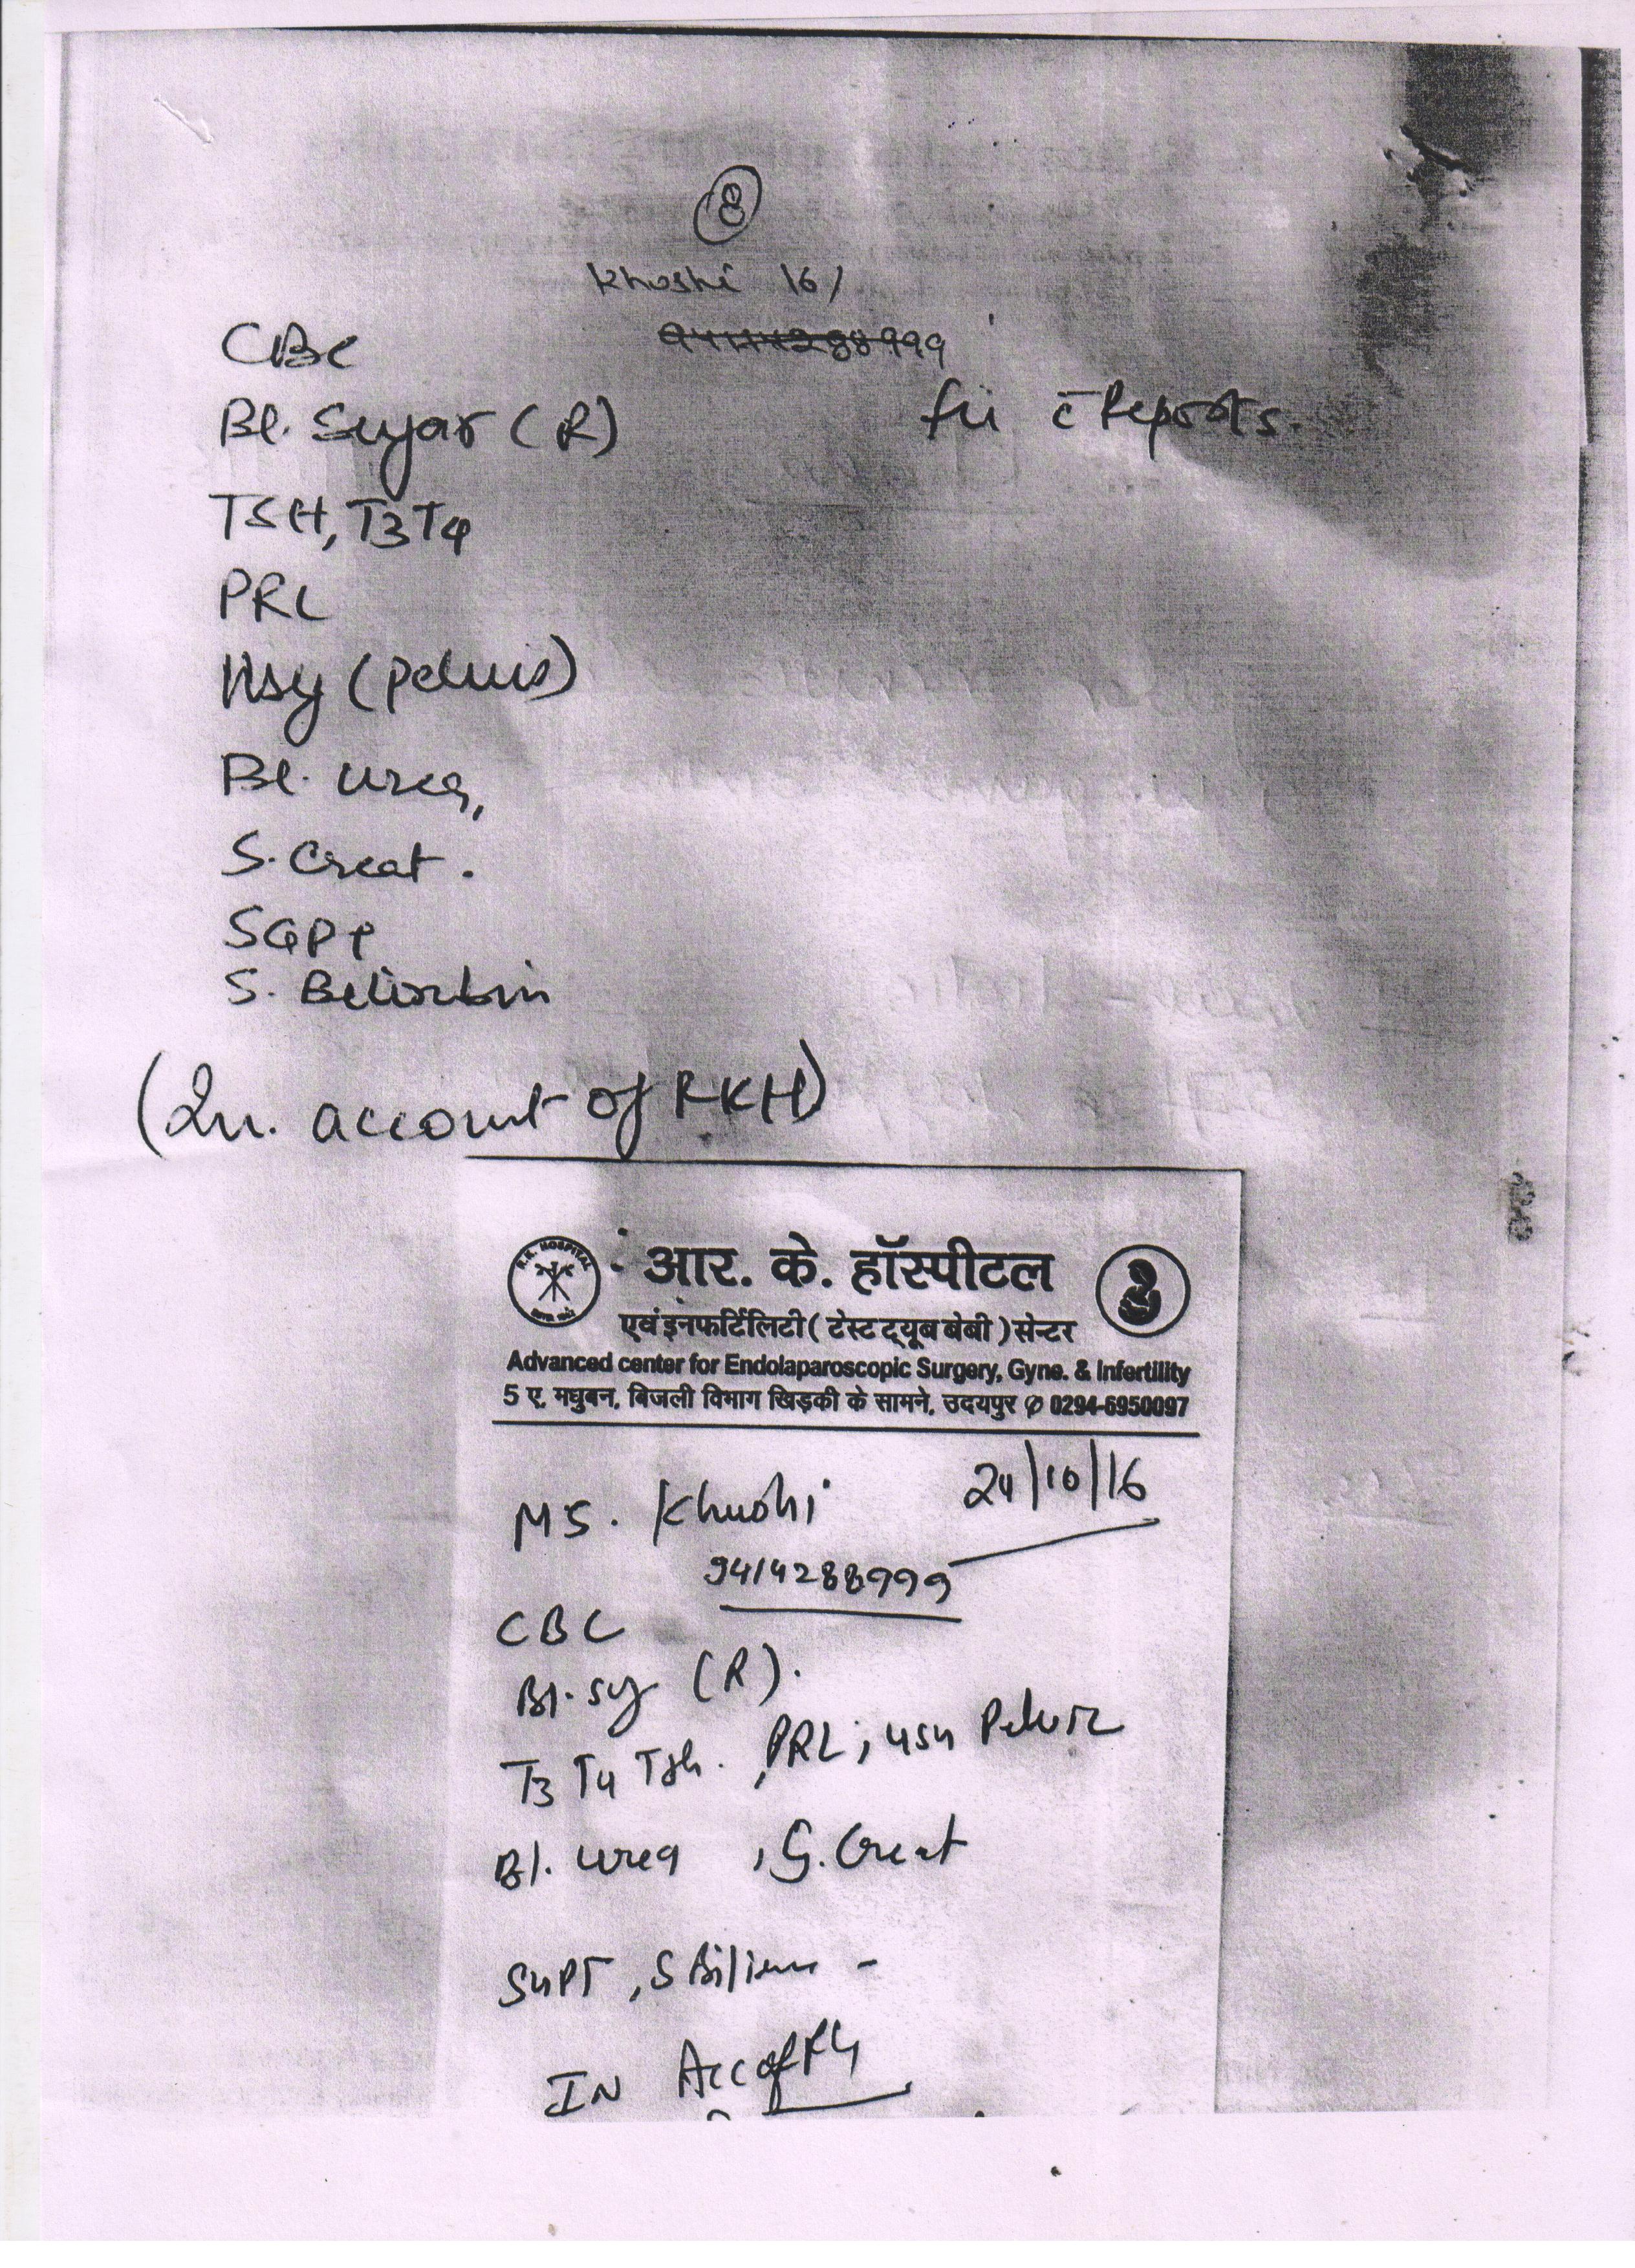 8
Khushi 16/
9414288999
CBC
Bl. Sugar (R)
f/u c̄ Reports.
TSH, T3T4
PRL
Usg (pelvis)
Bl. Urea,
S. Creat.
SGPT
S. Belirubin
(In. account of RKH)
R.K. HOSPITAL
आर. के. हॉस्पीटल
एवं इनफर्टिलिटी ( टेस्ट ट्यूब बेबी ) सेन्टर
Advanced center for Endolaparoscopic Surgery, Gyne. & Infertility
5 ए, मधुबन, बिजली विभाग खिड़की के सामने, उदयपुर ✆ 0294-6950097
24/10/16
MS. Khushi
9414288999
CBC
Bl. sg (R).
T3 T4 Tsh. , PRL ; usg Pelvic
Bl. urea , S. Creat
SGPT , S Bili
IN Acc of